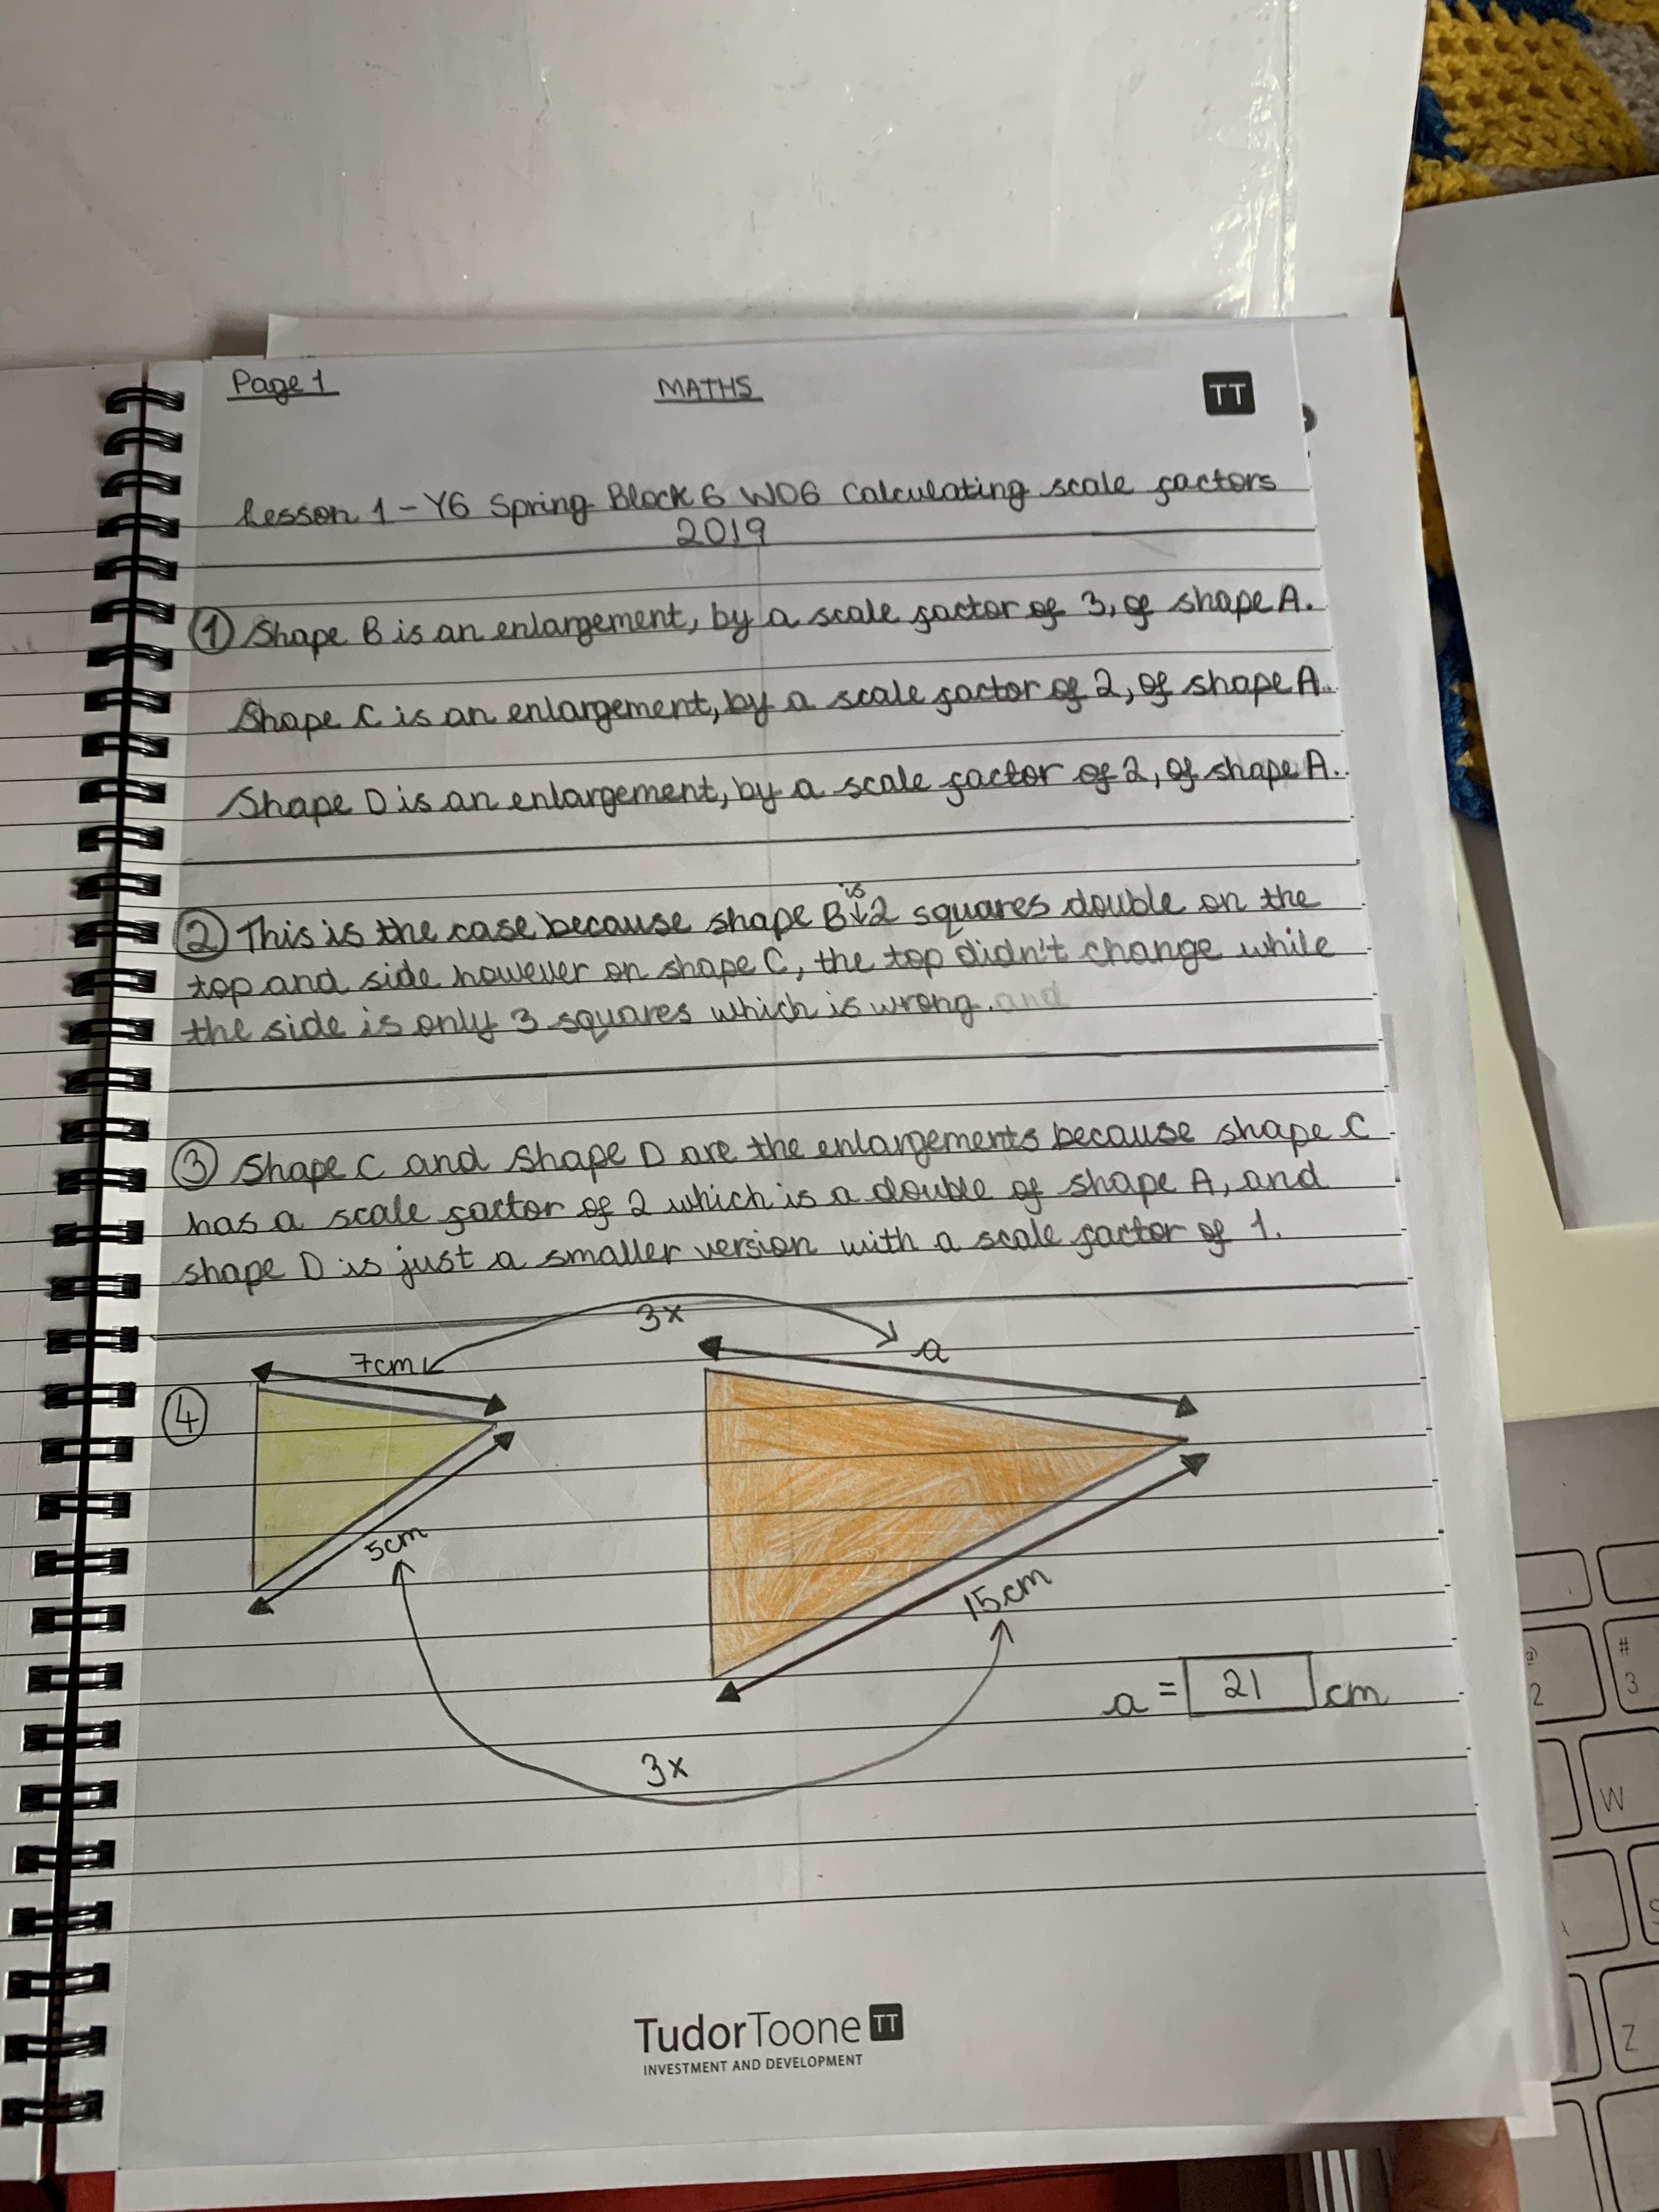 Page 1
MATHS
TT
Lesson 1 - Y6 Spring Block 6 WO6 Calculating scale factors
2019
1 Shape B is an enlargement, by a scale factor of 3, of shape A.
Shape C is an enlargement, by a scale factor of 2, of shape A.
Shape D is an enlargement, by a scale factor of 2, of shape A.
is
2 This is the case because shape B 2 squares double on the
top and side however on shape C, the top didn't change while
the side is only 3 squares which is wrong. and
3 Shape C and Shape D are the enlargements because shape C
has a scale factor of 2 which is a double of shape A, and
shape D is just a smaller version with a scale factor of 1.
3x
7cm
a
4
5cm
15cm
a = 21 cm
3x
TudorToone TT
INVESTMENT AND DEVELOPMENT
@
2
#
3
W
Z